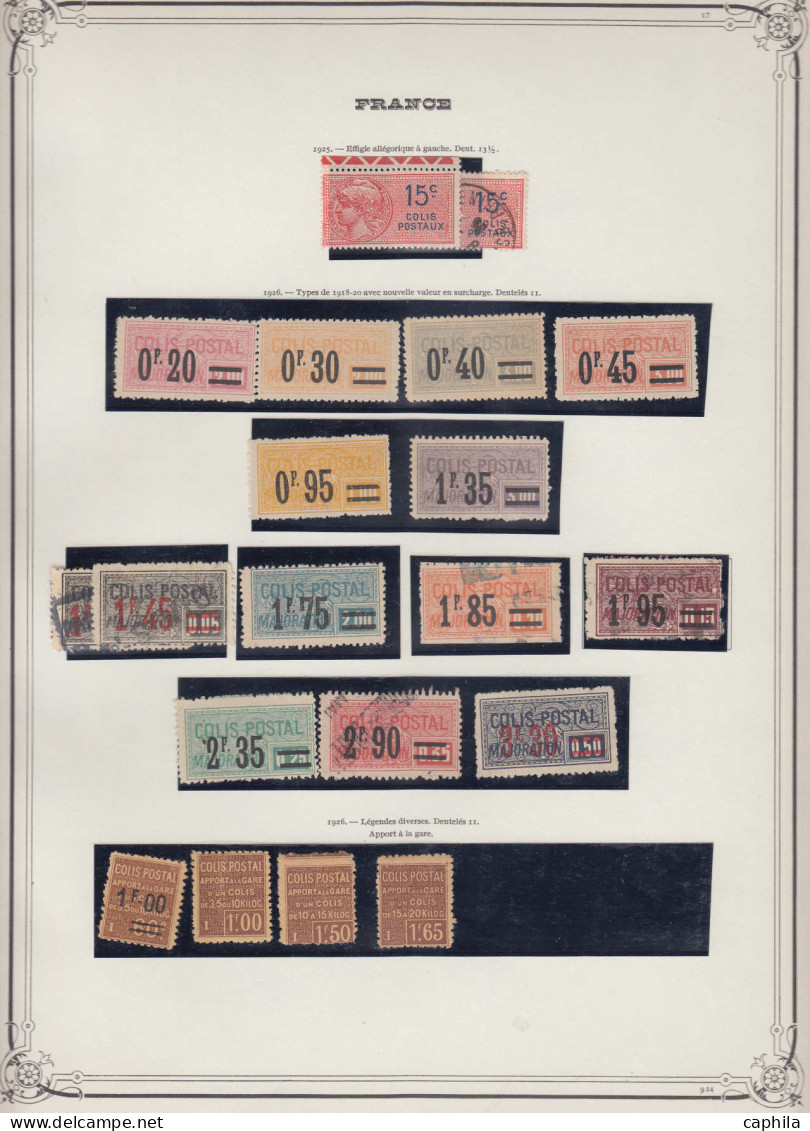 17
FRANCE
1925. — Effigie allégorique à gauche. Dent. 13½.
15c
COLIS
POSTAUX
15c
POSTAUX
1926. — Types de 1918-20 avec nouvelle valeur en surcharge. Dentelés 11.
COLIS POSTAL
0F.20
COLIS POSTAL
0F.30
COLIS POSTAL
0F.40
COLIS POSTAL
0F.45
COLIS POSTAL
0F.95
COLIS POSTAL
1F.35
MAJORATION
COLIS POSTAL
1F.45
MAJORATION 0.05
COLIS POSTAL
1F.75
MAJORATION 2.00
COLIS POSTAL
1F.85
COLIS POSTAL
1F.95
MAJORATION
COLIS POSTAL
2F.35
MAJORATION 1.25
COLIS POSTAL
2F.90
COLIS POSTAL
3F.30
MAJORATION 0.50
1926. — Légendes diverses. Dentelés 11.
Apport à la gare.
COLIS POSTAL
APPORT A LA GARE
1F.00
DE 3,5 OU 10 KILOG
I
COLIS POSTAL
APPORT A LA GARE
D'UN COLIS
DE 3,5 OU 10 KILOG
I 1F00
COLIS POSTAL
APPORT A LA GARE
D'UN COLIS
DE 10 A 15 KILOG
I 1F50
COLIS POSTAL
APPORT A LA GARE
D'UN COLIS
DE 15 A 20 KILOG
I 1F65
924
caphila